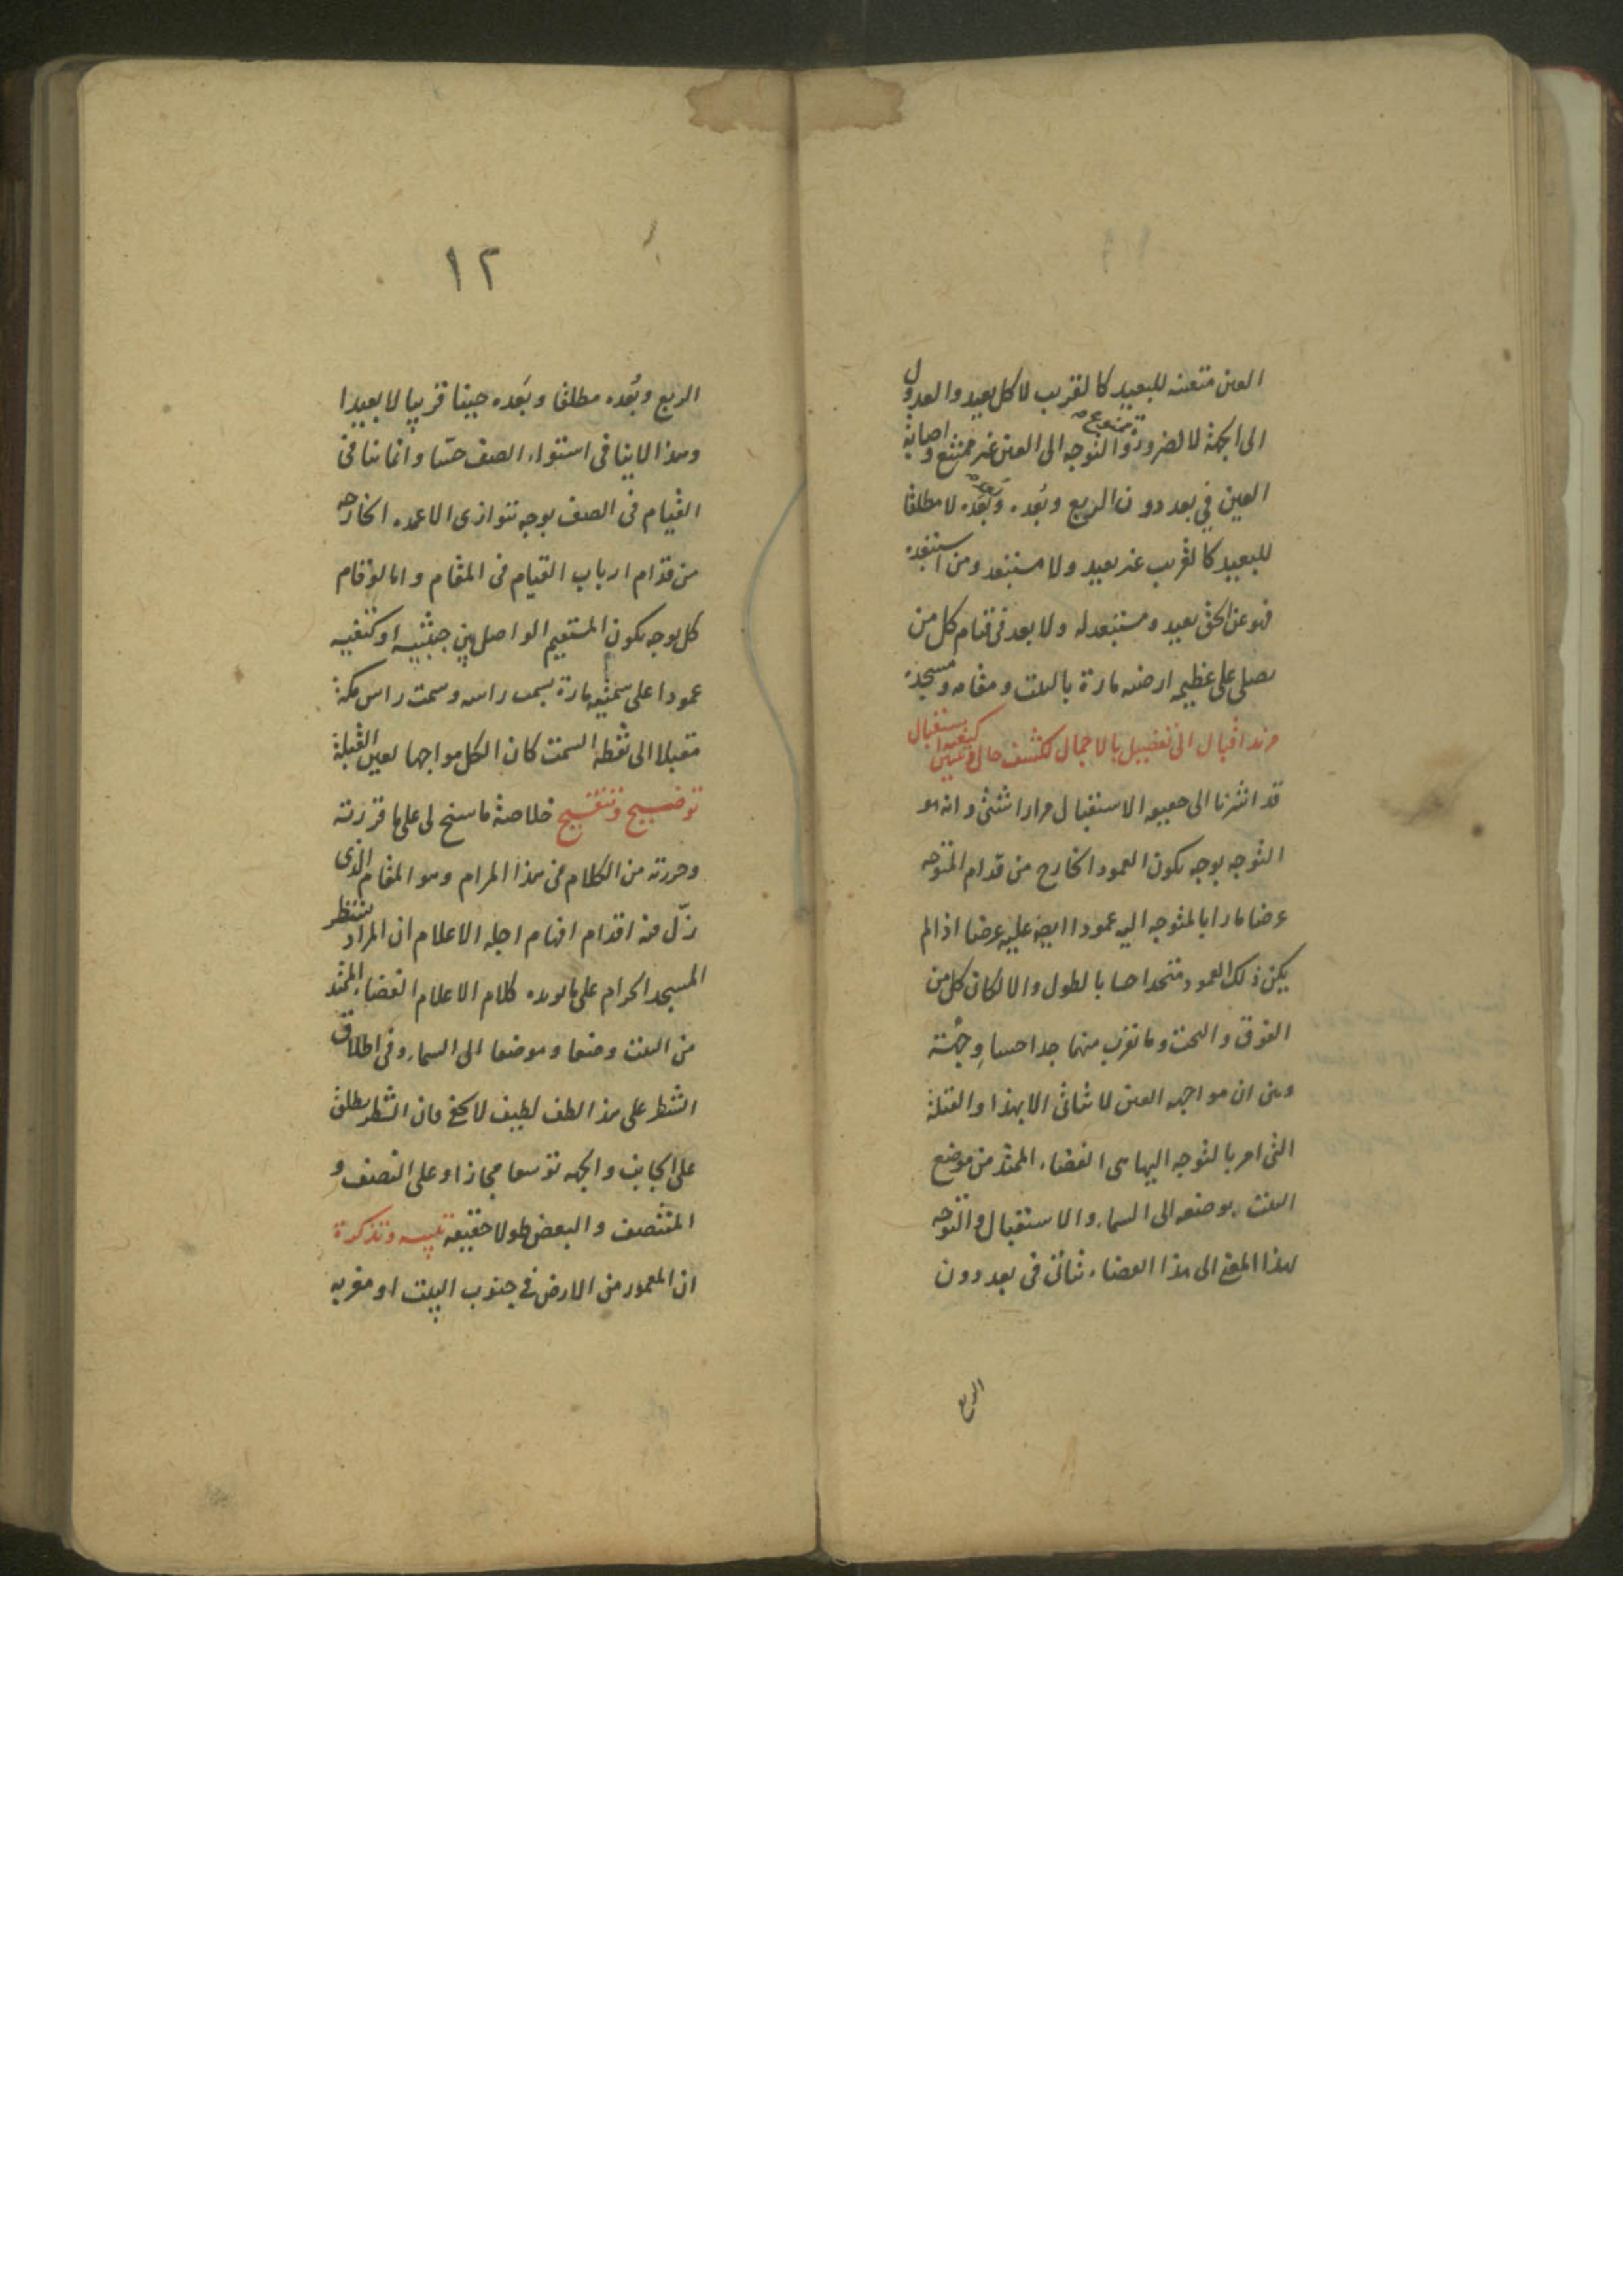 العين متعينه للبعيد كالقريب لا كل بعيد والعدول
الى الجهة لا لضرورة ممنوع والتوجه الى العين غير ممتنع واصابة
العين في بعد دون الربع وبُعده وبَعده لا مطلقا
للبعيد كالقريب غير بعيد ولا مستبعد ومن استبعده
فهو عن الحق بعيد ومستبعد له ولا بعد في قيام كل من
يصلى على عظيمه ارضيه مارة بالبيت ومقامه ومسجده
مزيد اقبال الى تفصيل بالاجمال لكشف حال وتبيين كيفية استقبال
قد اشرنا الى حقيقة الاستقبال مرارا شتى وانه هو
التوجه بوجه يكون العمود الخارج من قدام المتوجه
عرضا مارا بالمتوجه اليه عمودا ايضا عليه عرضا اذا لم
يكن ذلك العمود متحدا حسا بالطول والا لكان كل من
الفوق والتحت وما تقرب منهما جدا حسا وجهة
وبين ان مواجهه العين لا تتأتى الا بهذا والقبلة
التى امر بالتوجه اليها هى الفضاء الممتد من موضع
البيت بوضعه الى السماء والاستقبال والتوجه
بهذا المعنى الى هذا الفضاء يتأتى فى بعد دون
الربع
١٢
الربع وبُعده مطلقا وبَعده حينا قريبا لا بعيدا
وهذا لا ينافى استواء الصف حسا وانما ينافى
القيام فى الصف بوجه تتوازى الاعمده الخارجه
من قدام ارباب القيام فى المقام واما لو قام
كل بوجه يكون المستقيم الواصل بين جنبيه او كتفيه
عمودا على سمتيه مارة بسمت راسه وسمت راس مكة
مقبلا الى نقطه السمت كان الكل مواجها لعين القبلة
توضيح وتنقيح خلاصة ما سنح لى على ما قررته
وحررته من الكلام فى هذا المرام وهو المقام الذى
زلّ فيه اقدام افهام اجله الاعلام ان المراد بشطر
المسجد الحرام على ما يوده كلام الاعلام الفضاء الممتد
من البيت وضعا وموضعا الى السماء وفى اطلاق
الشطر على هذا لطف لطيف لا يخفى فان الشطر يطلق
على الجانب والجهه توسعا مجازا وعلى النصف و
المتنصف والبعض طولا حقيقة تنبيه وتذكرة
ان المعمور من الارض فى جنوب البيت او مغربه